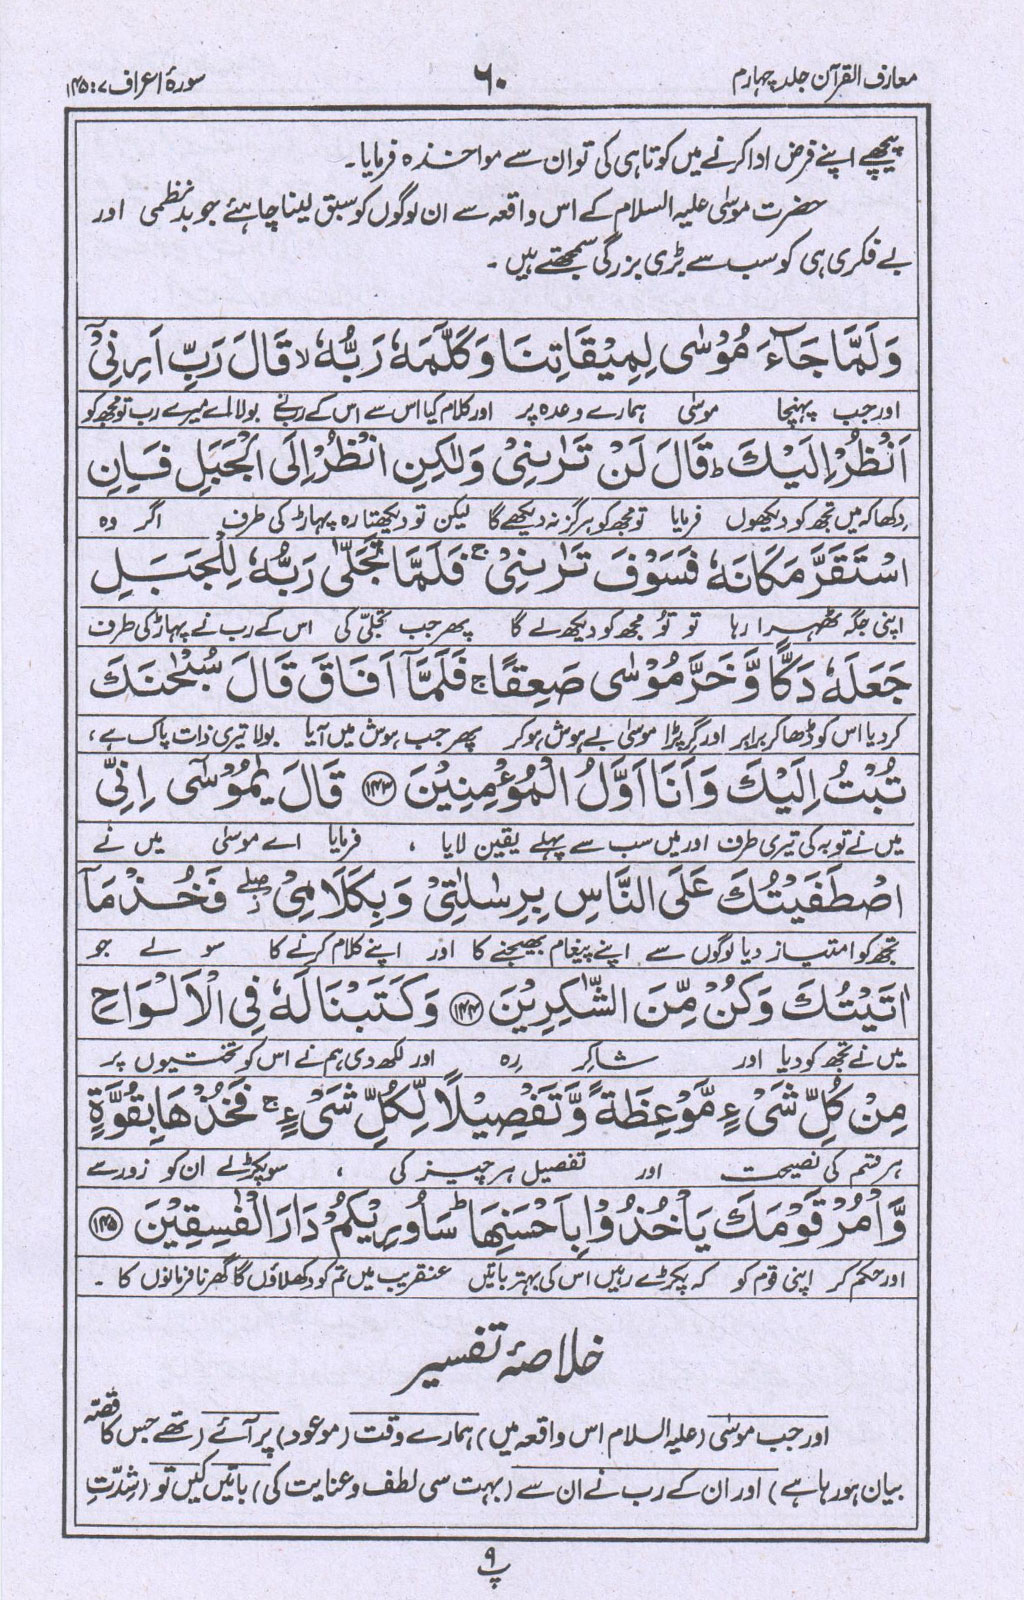 معارف القرآن جلد چہارم
۶۰
سورۂ اعراف ۷ : ۱۴۵
پیچھے اپنے فرض ادا کرنے میں کوتاہی کی تو ان سے مواخذہ فرمایا۔
حضرت موسیٰ علیہ السلام کے اس واقعہ سے ان لوگوں کو سبق لینا چاہئے جو بدنظمی اور
بے فکری ہی کو سب سے بڑی بزرگی سمجھتے ہیں۔
وَلَمَّا جَآءَ مُوْسٰى لِمِيْقَاتِنَا وَكَلَّمَهٗ رَبُّهٗ ۙ قَالَ رَبِّ اَرِنِيْٓ
اور جب پہنچا موسیٰ ہمارے وعدہ پر اور کلام کیا اس سے اس کے رب نے بولا اے میرے رب تو مجھ کو
اَنْظُرْ اِلَيْكَ ؕ قَالَ لَنْ تَرٰىنِيْ وَلٰكِنِ انْظُرْ اِلَى الْجَبَلِ فَاِنِ
دکھا کہ میں تجھ کو دیکھوں فرمایا تو مجھ کو ہرگز نہ دیکھے گا لیکن تو دیکھتا رہ پہاڑ کی طرف اگر وہ
اسْتَقَرَّ مَكَانَهٗ فَسَوْفَ تَرٰىنِيْ ۚ فَلَمَّا تَجَلّٰى رَبُّهٗ لِلْجَبَلِ
اپنی جگہ ٹھہرا رہا تو تُو مجھ کو دیکھ لے گا پھر جب تجلّی کی اس کے رب نے پہاڑ کی طرف
جَعَلَهٗ دَكًّا وَّخَرَّ مُوْسٰى صَعِقًا ۚ فَلَمَّآ اَفَاقَ قَالَ سُبْحٰنَكَ
کر دیا اس کو ڈھا کر برابر اور گر پڑا موسیٰ بے ہوش ہو کر پھر جب ہوش میں آیا بولا تیری ذات پاک ہے ،
تُبْتُ اِلَيْكَ وَاَنَا اَوَّلُ الْمُؤْمِنِيْنَ ﴿۱۴۳﴾ قَالَ يٰمُوْسٰٓى اِنِّي
میں نے توبہ کی تیری طرف اور میں سب سے پہلے یقین لایا ، فرمایا اے موسیٰ میں نے
اصْطَفَيْتُكَ عَلَى النَّاسِ بِرِسٰلٰتِيْ وَبِكَلَامِيْ ۖ فَخُذْ مَآ
تجھ کو امتیاز دیا لوگوں سے اپنے پیغام بھیجنے کا اور اپنے کلام کرنے کا سو لے جو
اٰتَيْتُكَ وَكُنْ مِّنَ الشّٰكِرِيْنَ ﴿۱۴۴﴾ وَكَتَبْنَا لَهٗ فِي الْاَلْوَاحِ
میں نے تجھ کو دیا اور شاکر رہ اور لکھ دی ہم نے اس کو تختیوں پر
مِنْ كُلِّ شَيْءٍ مَّوْعِظَةً وَّتَفْصِيْلًا لِّكُلِّ شَيْءٍ ۚ فَخُذْهَا بِقُوَّةٍ
ہر قسم کی نصیحت اور تفصیل ہر چیز کی ، سو پکڑ لے ان کو زور سے
وَّاْمُرْ قَوْمَكَ يَاْخُذُوْا بِاَحْسَنِهَا ؕ سَاُورِيْكُمْ دَارَ الْفٰسِقِيْنَ ﴿۱۴۵﴾
اور حکم کر اپنی قوم کو کہ پکڑے رہیں اس کی بہتر باتیں عنقریب میں تم کو دکھلاؤں گا گھر نافرمانوں کا ۔
خلاصۂ تفسیر
اور جب موسیٰ (علیہ السلام اس واقعہ میں) ہمارے وقت (موعود) پر آئے (تھے جس کا قصّہ
بیان ہو رہا ہے) اور ان کے رب نے ان سے (بہت سی لطف و عنایت کی) باتیں کیں تو (شدّتِ
۹
پ